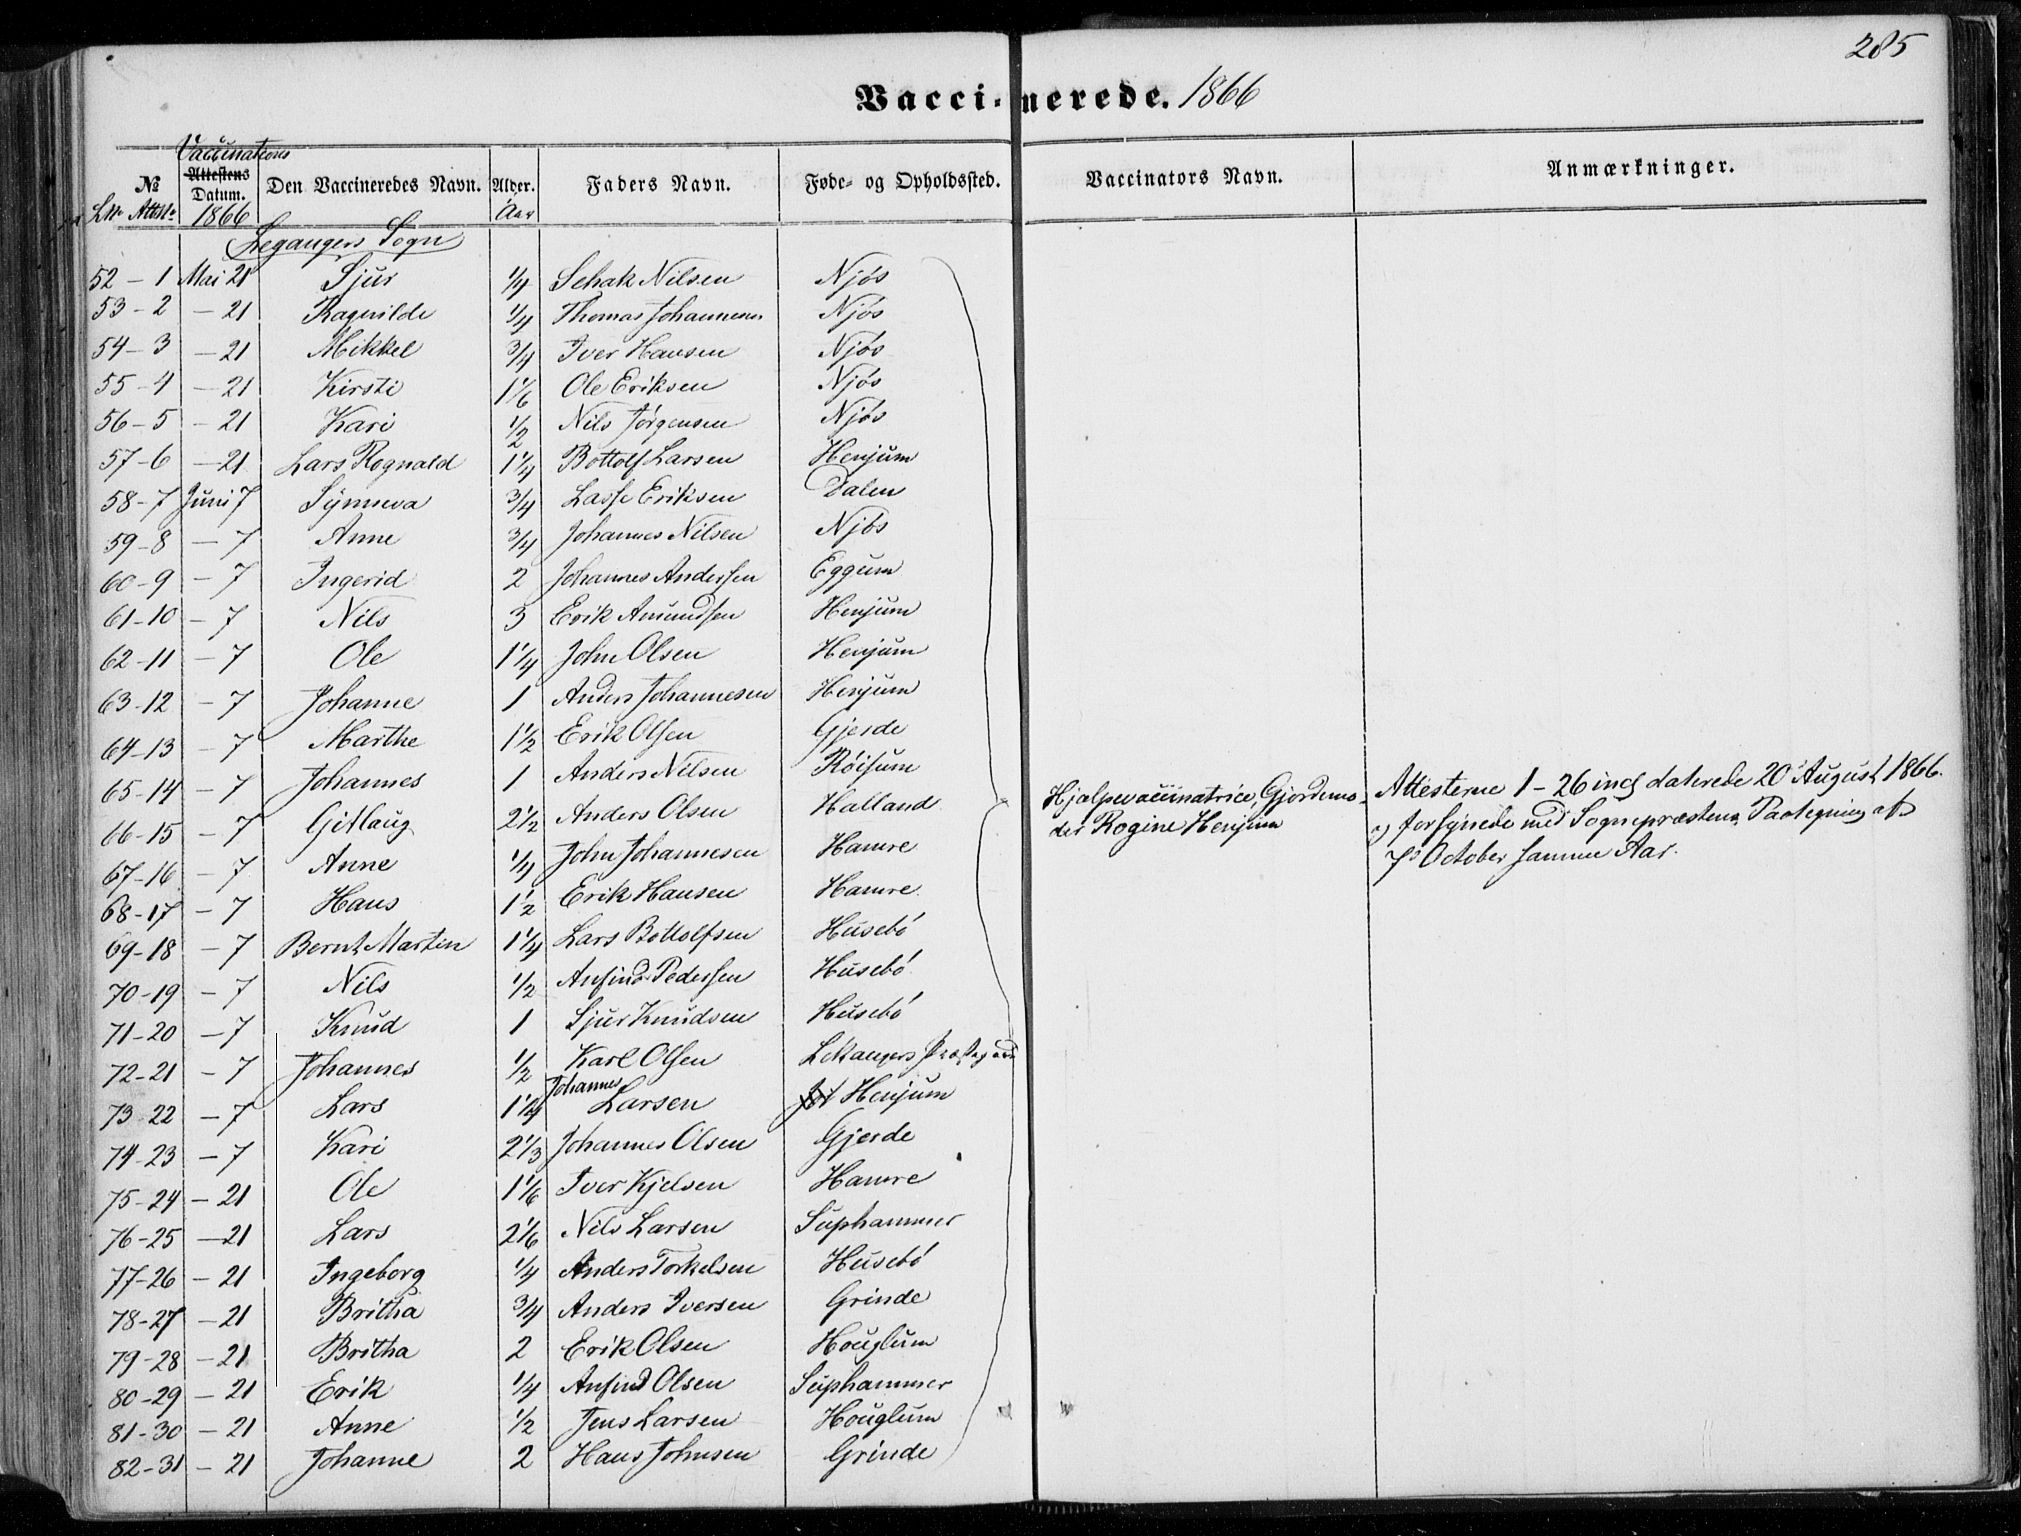 285
Vacci-nerede. 1866
Vaccinations
№ Attestens Datum. Den Vaccineredes Navn. Alder. Faders Navn. Føde- og Opholdssted. Vaccinators Navn. Anmærkninger.
L№ Att№ 1866 Aar
Leganger Sogn
52 - 1 Mai 21 Sjur 1/4 Schak Nilsen Njøs
53 - 2 - 21 Ragnilde 1/4 Thomas Johannesen Njøs
54 - 3 - 21 Mikkel 3/4 Iver Hansen Njøs
55 - 4 - 21 Kirsti 1 1/6 Ole Eriksen Njøs
56 - 5 - 21 Kari 1/2 Nils Jørgensen Njøs
57 - 6 - 21 Lars Rognald 1 1/4 Bottolf Larsen Henjum
58 - 7 Juni 7 Synneva 3/4 Lasse Eriksen Dalen
59 - 8 - 7 Anne 3/4 Johannes Nilsen Njøs
60 - 9 - 7 Ingerid 2 Johannes Andersen Eggum
61 - 10 - 7 Nils 3 Erik Amundsen Henjum
62 - 11 - 7 Ole 1 1/4 John Olsen Henjum
63 - 12 - 7 Johanne 1 Anders Johannesen Henjum
64 - 13 - 7 Marthe 1 1/2 Erik Olsen Gjerde
65 - 14 - 7 Johannes 1 Anders Nilsen Røisum
66 - 15 - 7 Gitlaug 2 1/2 Anders Olsen Halland
Hjælpevaccinatrice, Gjordemo-
der Rogine Henjum
Attesterne 1 - 26 incl daterede 20 August 1866.
og forsynede med Sognepræstens Paategning af
7 October samme Aar.
67 - 16 - 7 Anne 1/4 John Johannesen Hamre
68 - 17 - 7 Hans 1 1/2 Erik Hansen Hamre
69 - 18 - 7 Bernt Martin 1 1/4 Lars Bottolfsen Husebø
70 - 19 - 7 Nils 1/2 Anfind Pedersen Husebø
71 - 20 - 7 Knud 1 Sjur Knudsen Husebø
72 - 21 - 7 Johannes 1/2 Karl Olsen Lekangers Præstegaard
73 - 22 - 7 Lars 1 1/4 Johannes Larsen Henjum
74 - 23 - 7 Kari 2 1/3 Johannes Olsen Gjerde
75 - 24 - 21 Ole 1 1/6 Iver Kjelsen Hamre
76 - 25 - 21 Lars 2 1/6 Nils Larsen Suphammer
77 - 26 - 21 Ingeborg 1/4 Anders Torkelsen Husebø
78 - 27 - 21 Britha 3/4 Anders Iversen Grinde
79 - 28 - 21 Britha 2 Erik Olsen Houglum
80 - 29 - 21 Erik 1/4 Anfind Olsen Suphammer
81 - 30 - 21 Anne 1/2 Jens Larsen Houglum
82 - 31 - 21 Johanne 2 Hans Johnsen Grinde